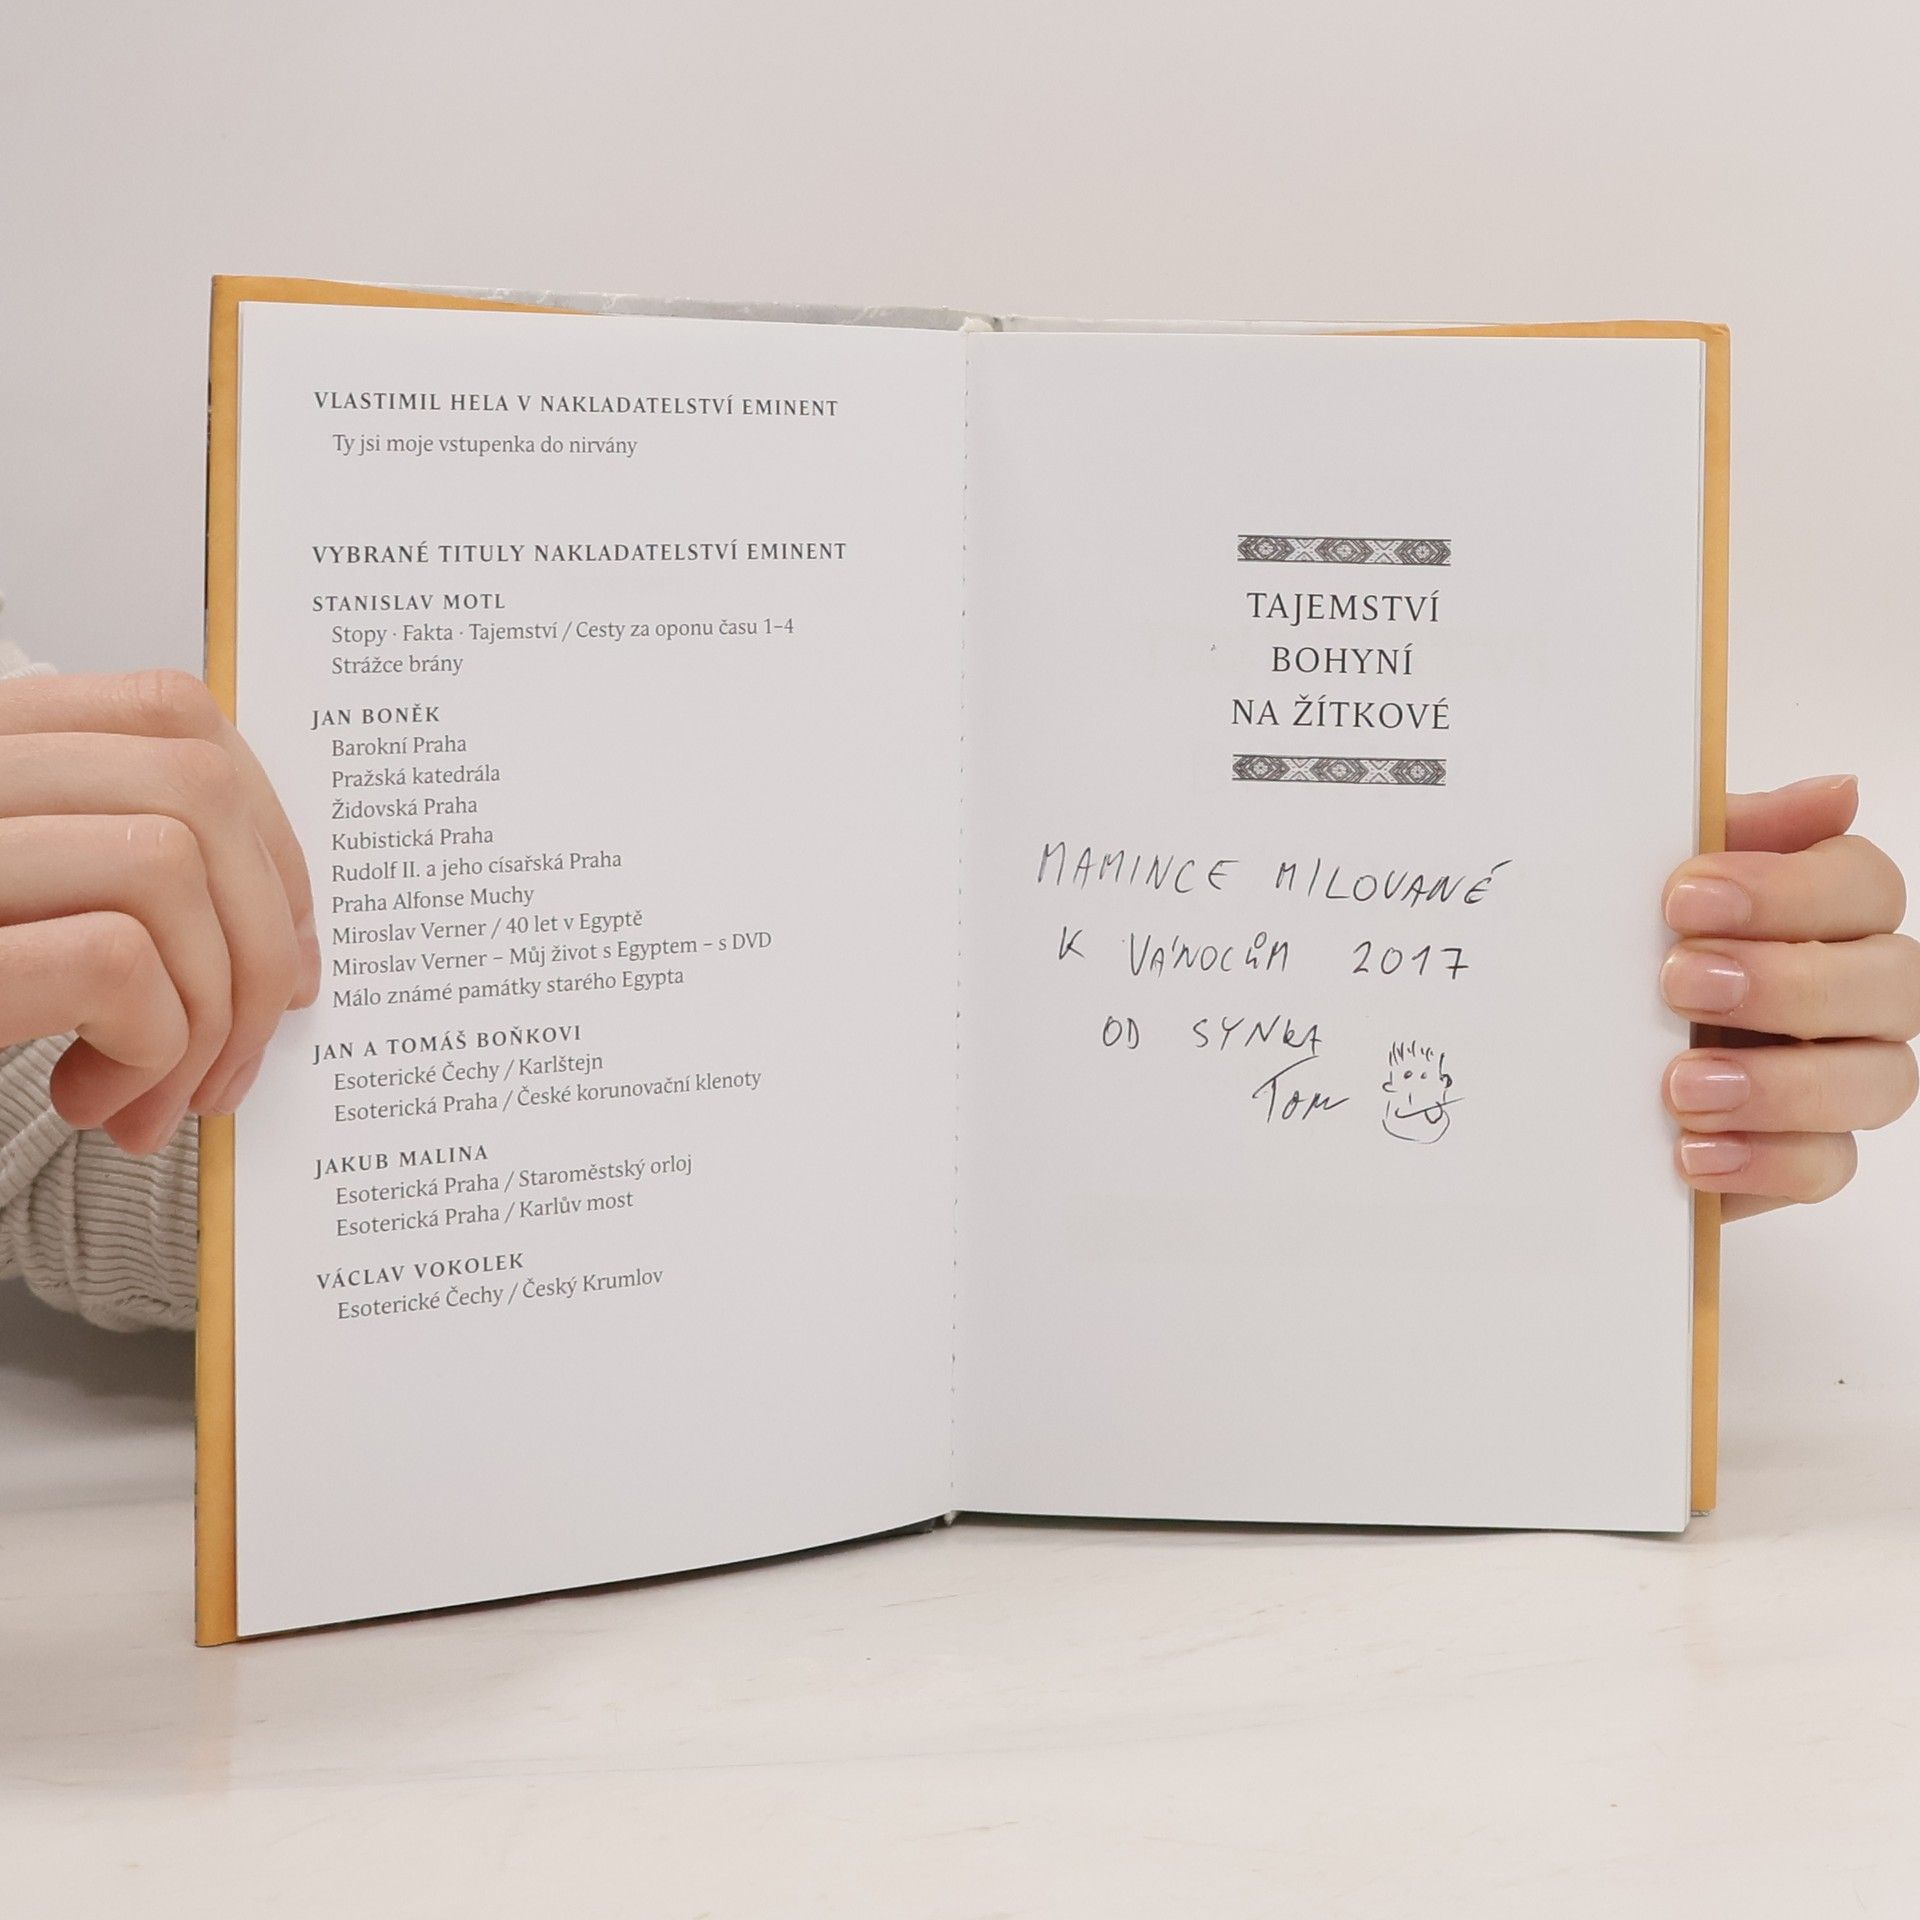 VLASTIMIL HELA V NAKLADATELSTVÍ EMINENT
Ty jsi moje vstupenka do nirvány
VYBRANÉ TITULY NAKLADATELSTVÍ EMINENT
STANISLAV MOTL
Stopy · Fakta · Tajemství / Cesty za oponu času 1–4
Strážce brány
JAN BONĚK
Barokní Praha
Pražská katedrála
Židovská Praha
Kubistická Praha
Rudolf II. a jeho císařská Praha
Praha Alfonse Muchy
Miroslav Verner / 40 let v Egyptě
Miroslav Verner – Můj život s Egyptem – s DVD
Málo známé památky starého Egypta
JAN A TOMÁŠ BOŇKOVI
Esoterické Čechy / Karlštejn
Esoterická Praha / České korunovační klenoty
JAKUB MALINA
Esoterická Praha / Staroměstský orloj
Esoterická Praha / Karlův most
VÁCLAV VOKOLEK
Esoterické Čechy / Český Krumlov
TAJEMSTVÍ
BOHYNÍ
NA ŽÍTKOVÉ
MAMINCE MILOVANÉ
K VÁNOCŮM 2017
OD SYNKA
Tom